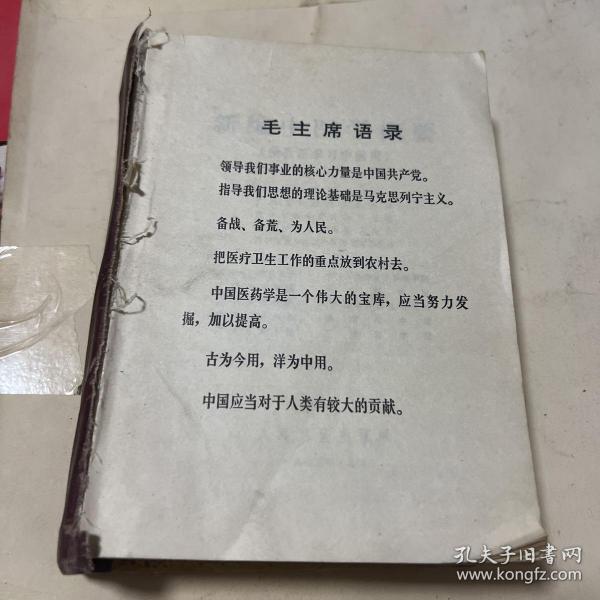 毛主席语录
领导我们事业的核心力量是中国共产党。
指导我们思想的理论基础是马克思列宁主义。
备战、备荒、为人民。
把医疗卫生工作的重点放到农村去。
中国医药学是一个伟大的宝库，应当努力发
掘，加以提高。
古为今用，洋为中用。
中国应当对于人类有较大的贡献。
孔夫子旧书网
www.kongfz.com